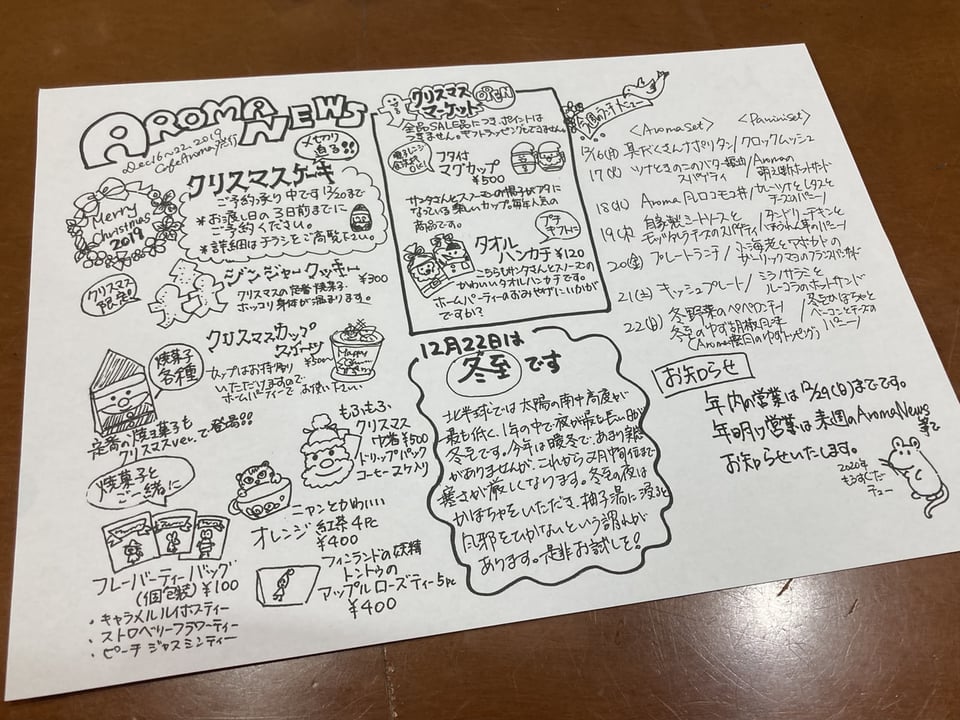 AROMA NEWS
Dec16~22.2019
CafeAroma発行
〆切り
迫る!!
クリスマスケーキ
ご予約承り中です12/20まで
*お渡し日の3日前までに
ご予約ください。
*詳細はチラシをご高覧下さい。
Merry
Christmas
2019
クリスマス
限定
ジンジャークッキー
¥300
クリスマスの定番焼菓子
ホッコリ身体が温まります。
焼菓子
各種
クリスマスカップ
スイーツ
¥500
カップはお持帰り
いただけますので
ホームパーティーでお使い下さい
Happy
定番の焼き菓子も
クリスマスver.で登場!!
焼菓子と
ご一緒に
フレーバーティーバッグ
(個包装)¥100
・キャラメルルイボスティー
・ストロベリーフラワーティー
・ピーチジャスミンティー
もふもふ
クリスマス
巾着¥500
ドリップパック
コーヒー2ヶ入り
ニャンとかわいい
オレンジ紅茶4PC
¥400
フィンランドの妖精
トントゥの
アップルローズティー5pc
¥400
クリスマス
マーケット
OPEN
全品SALE品につきポイントは
つきません。ギフトラッピングもできません。
電子レンジ
フタ付
マグカップ
¥500
サンタさんとスノーマンの帽子がフタに
なっている楽しいカップ。毎年人気の
商品です。
プチ
ギフトに
タオル
ハンカチ¥120
こちらもサンタさんとスノーマンの
かわいいタオルハンカチです。
ホームパーティーのおみやげにいかが
ですか?
12月22日は
冬至です
北半球では太陽の南中高度が
最も低く、1年の中で夜が最も長い日が
冬至です。今年は暖冬で、あまり実感
がありませんが、これから2月中旬位まで
寒さが厳しくなります。冬至の夜は
かぼちゃをいただき、柚子湯に浸ると
風邪をひかないという謂れが
あります。是非お試しを!
今週のランチメニュー
<AromaSet>
<PaniniSet>
12/16(月)具だくさんナポリタン/クロックムッシュ
17(火)ツナときのこのバター醤油スパゲティ/Aromaの萌え断ホットサンド
18(水)Aroma風ロコモコ丼/カレーツナとレタスとチーズのパニーノ
19(木)自家製ミートソースとモッツァレラチーズのスパゲティ/タンドリーチキンとほうれん草のパニーノ
20(金)プレートランチ/小海老とアボカドのガーリックマヨのフランスパンサンド
21(土)キッシュプレート/ミラノサラミとルーコラのホットサンド
22(日)冬野菜のペペロンチーノ
冬至のゆず胡椒風味
(Aroma農園のゆずトッピング)/冬至かぼちゃとベーコンとチーズのパニーノ
お知らせ
年内の営業は12/29(日)までです。
年明け営業は来週のAromaNews
等で
お知らせいたします。
2020年
もうすぐだ
チュー